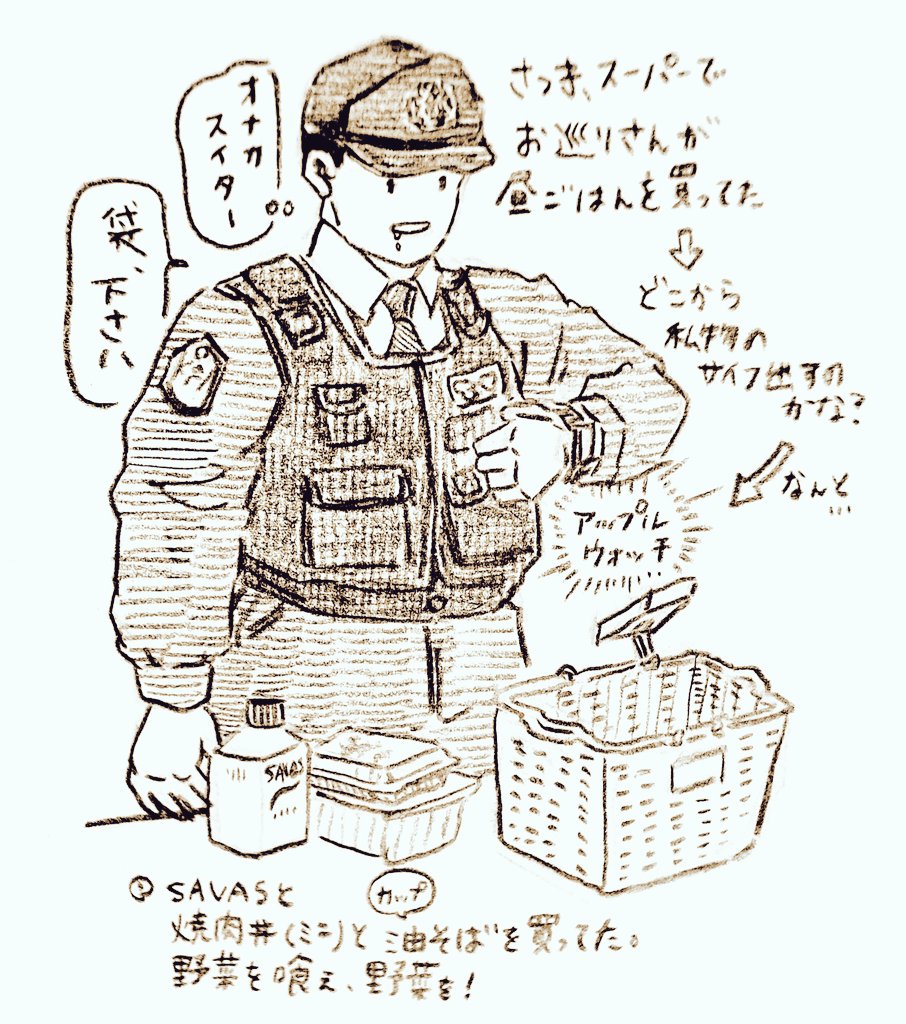 さっき、スーパーで
お巡りさんが
昼ごはんを買ってた
どこから
私物の
サイフ出すの
かな?
なんと
…
アップル
ウォッチ
オナカ
スイター
袋、下さい
SAVAS
SAVASと
焼肉丼(ミニ)と カップ 油そばを買ってた。
野菜を喰え、野菜を!